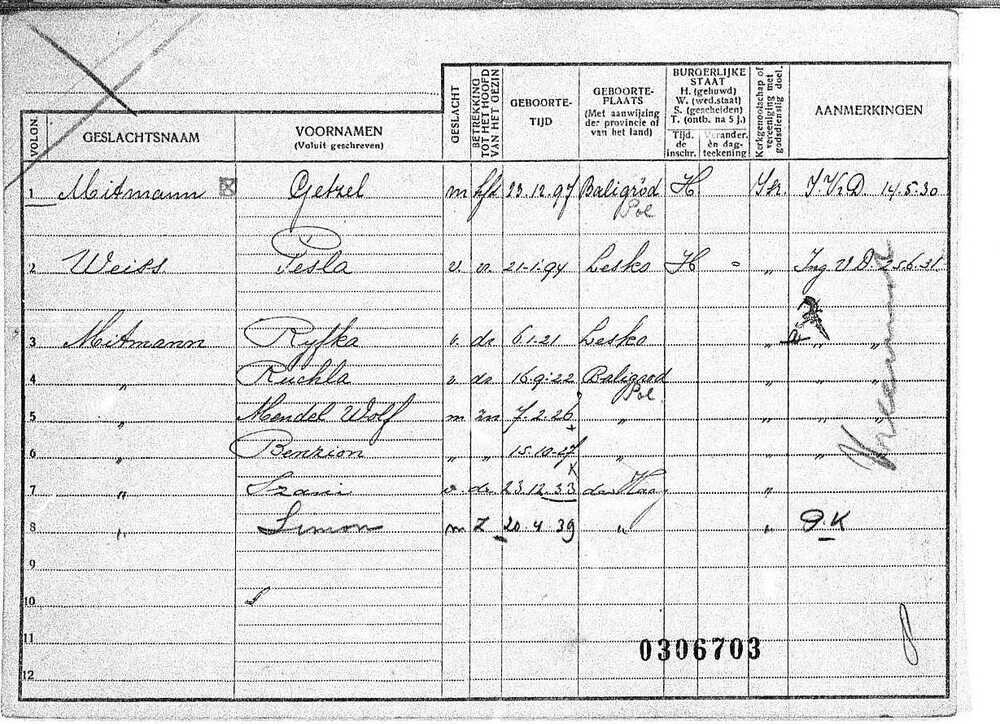 VOLGN. GESLACHTSNAAM VOORNAMEN (Voluit geschreven) GESLACHT BETREKKING TOT HET HOOFD VAN HET GEZIN GEBOORTE-TIJD GEBOORTE-PLAATS (Met aanwijzing der provincie of van het land) BURGERLIJKE STAAT H. (gehuwd) W. (wed.staat) S. (gescheiden) T. (ontb. na 5 j.) Tijd. de inschr. Verander. èn dag-teekening Kerkgenootschap of vereeniging met godsdienstig doel. AANMERKINGEN
1 Mitmann Getzel m hfd 23.12.97 Baligrod H 14.5.30
Pol
2 Weiss Pesla v. v. 21-1-94 Lesko H = „ Ing V.D. 25.6.31
3 Mitmann Ryfka v. dr 6.1.21 Lesko „ „ „
4 „ Ruchla v. dr 16.9.22 Baligrod „ „ „
Pol.
5 „ Mendel Wolf m zn 7.2.26 „ „ „ „
6 „ Benzion „ „ 15.10.27 „ „ „ „
K
7 „ v. dr 23.12.33 den Haag „
8 „ Simon m Z 20.4.39 „ „ P.K
Vreemd
9
10
11 0306703
12